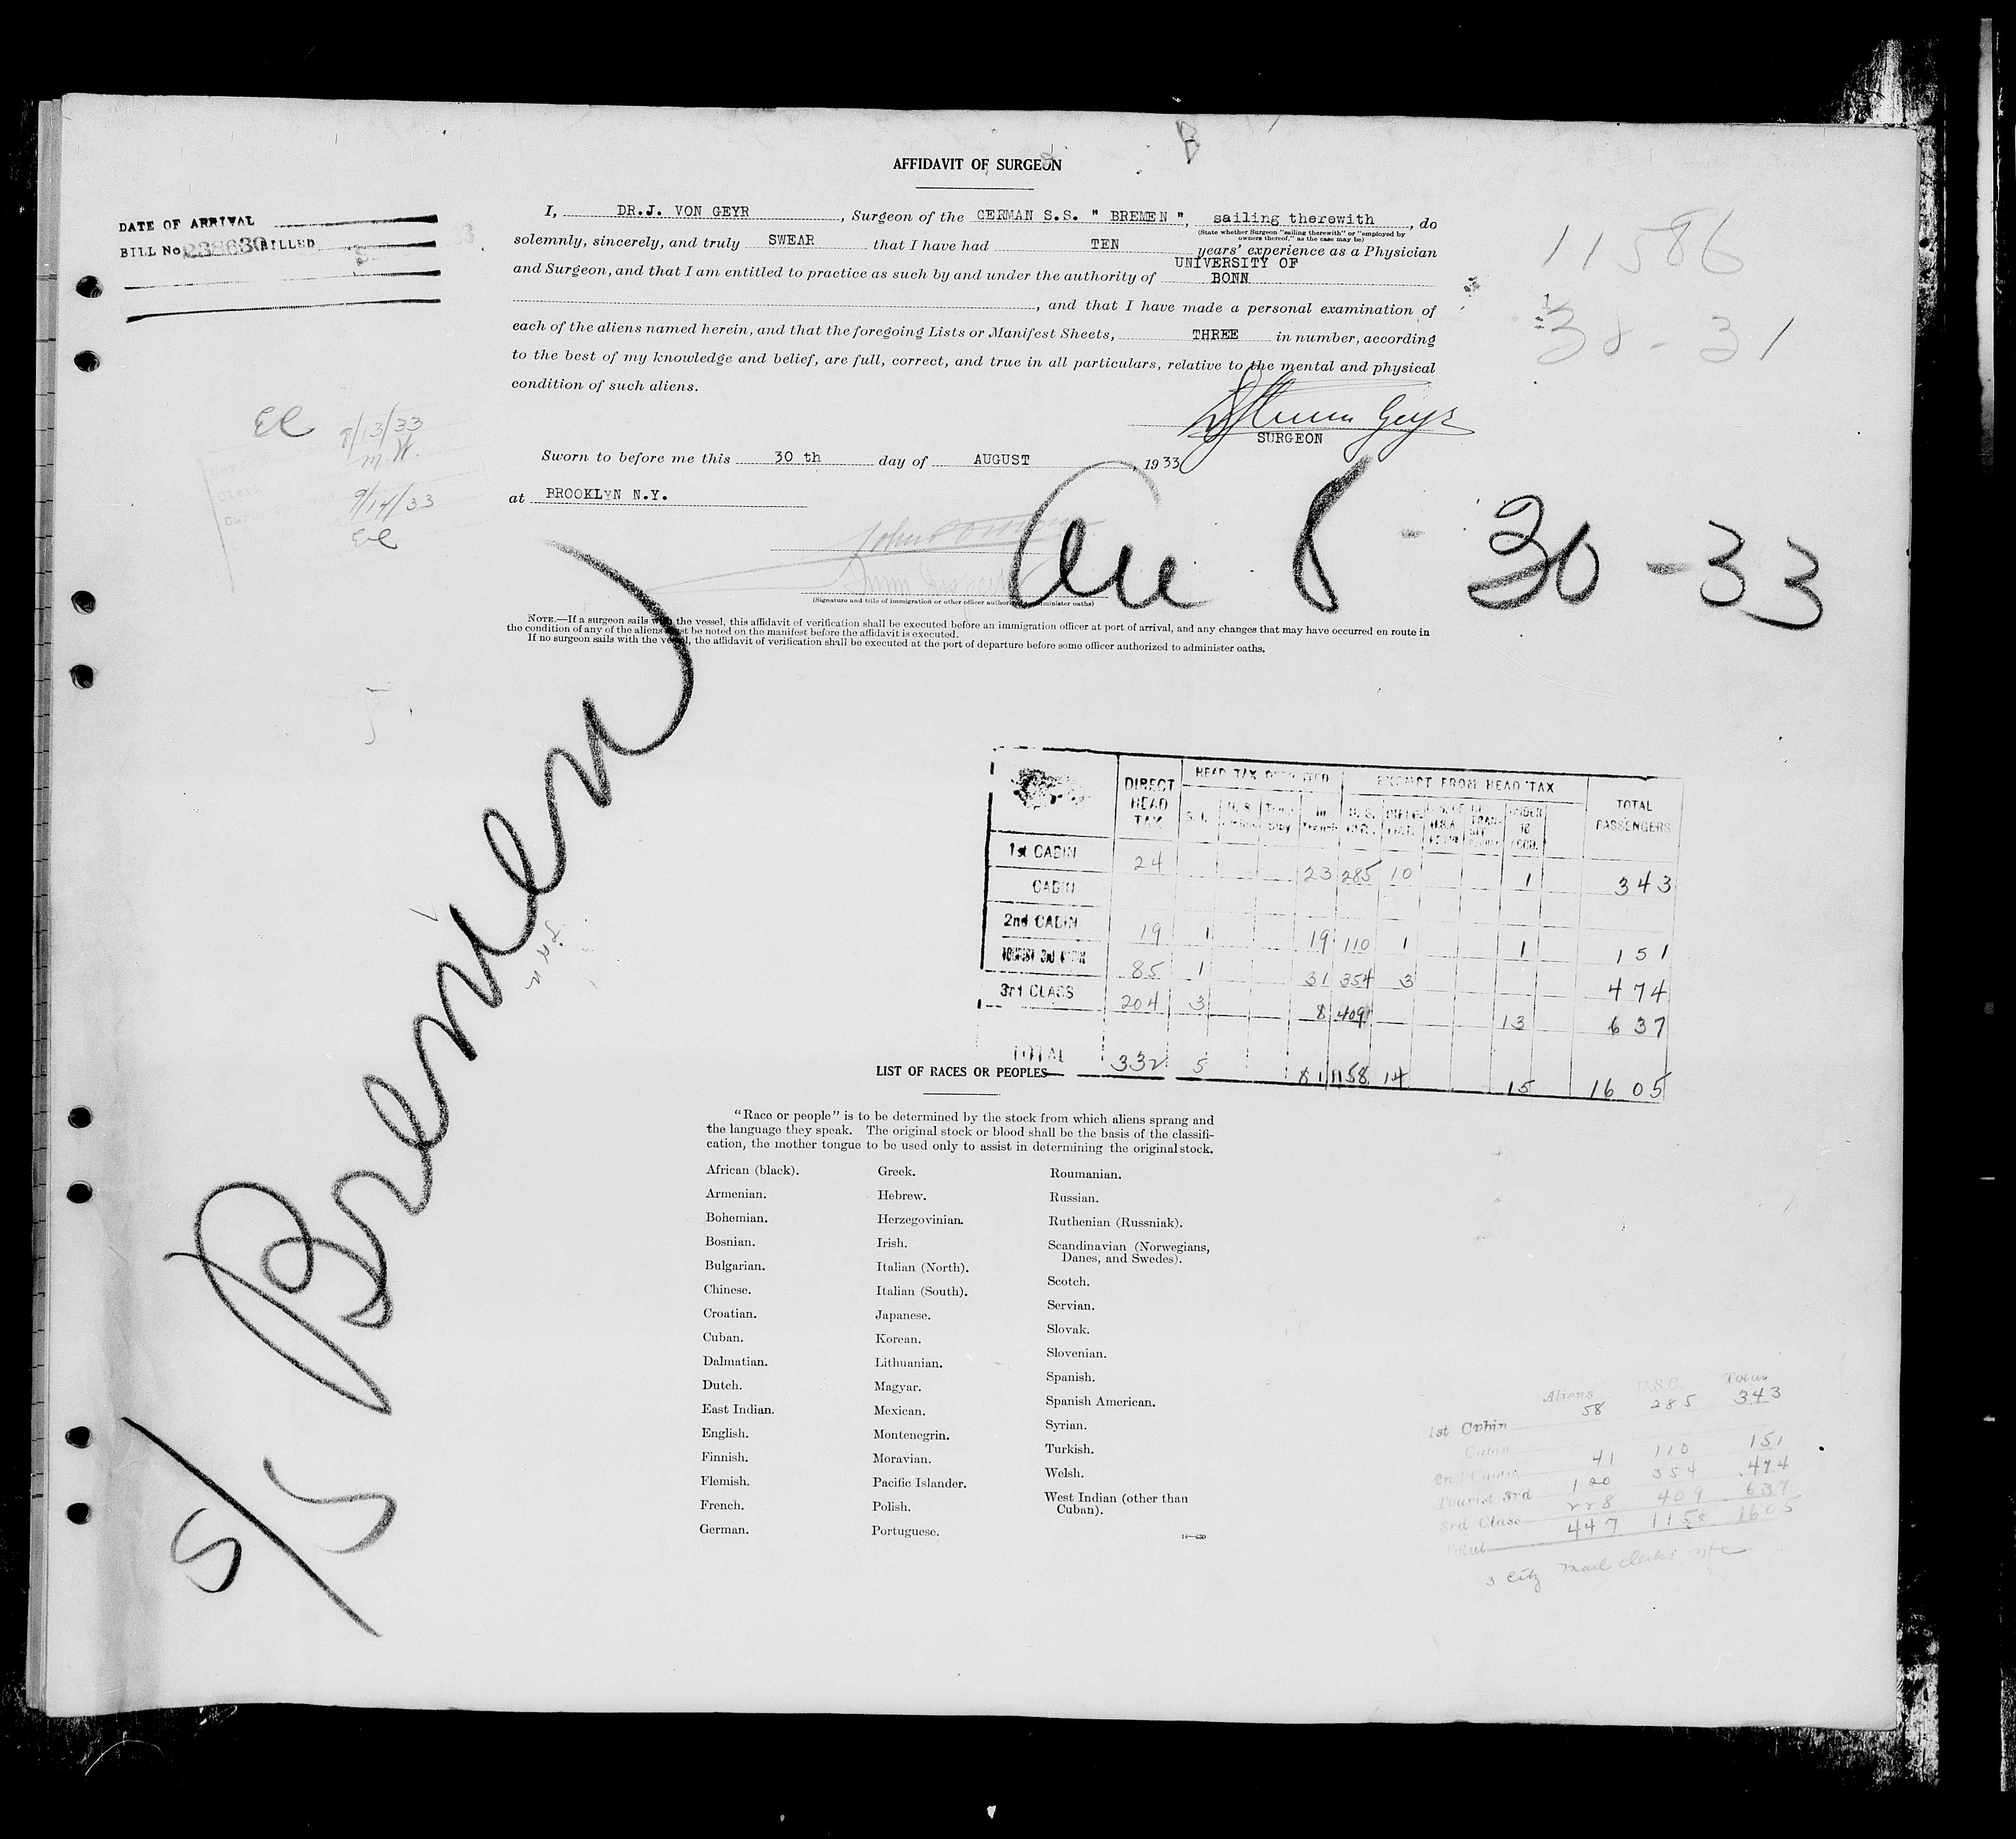 AFFIDAVIT OF SURGEON
DATE OF ARRIVAL
BILL No. 238630 BILLED
I, DR.J. VON GEYR, Surgeon of the GERMAN S.S. " BREMEN ", sailing therewith, do
(State whether Surgeon "sailing therewith" or "employed by
owners thereof," as the case may be)
solemnly, sincerely, and truly SWEAR that I have had TEN years' experience as a Physician
and Surgeon, and that I am entitled to practice as such by and under the authority of UNIVERSITY OF
BONN
, and that I have made a personal examination of
each of the aliens named herein, and that the foregoing Lists or Manifest Sheets, THREE in number, according
to the best of my knowledge and belief, are full, correct, and true in all particulars, relative to the mental and physical
condition of such aliens.
11586
38-31
SURGEON
El 9/13/33
M.W.
9/14/33
El
Sworn to before me this 30 th day of AUGUST, 1933
at BROOKLYN N.Y.
8-30-33
(Signature and title of immigration or other officer authorized to administer oaths)
NOTE.—If a surgeon sails with the vessel, this affidavit of verification shall be executed before an immigration officer at port of arrival, and any changes that may have occurred en route in
the condition of any of the aliens must be noted on the manifest before the affidavit is executed.
If no surgeon sails with the vessel, the affidavit of verification shall be executed at the port of departure before some officer authorized to administer oaths.
S/S Bremen
DIRECT HEAD TAX HEAD TAX EXEMPT FROM HEAD TAX TOTAL PASSENGERS
1st CABIN 24 23 285 10 1 343
CABIN
2nd CABIN 19 1 19 110 1 1 151
TOURIST 3rd CABIN 85 1 31 354 3 474
3rd CLASS 204 3 8 409 13 637
TOTAL 332 5 81 1158 14 15 1605
LIST OF RACES OR PEOPLES
"Race or people" is to be determined by the stock from which aliens sprang and
the language they speak. The original stock or blood shall be the basis of the classifi-
cation, the mother tongue to be used only to assist in determining the original stock.
African (black).
Armenian.
Bohemian.
Bosnian.
Bulgarian.
Chinese.
Croatian.
Cuban.
Dalmatian.
Dutch.
East Indian.
English.
Finnish.
Flemish.
French.
German.
Greek.
Hebrew.
Herzegovinian.
Irish.
Italian (North).
Italian (South).
Japanese.
Korean.
Lithuanian.
Magyar.
Mexican.
Montenegrin.
Moravian.
Pacific Islander.
Polish.
Portuguese.
Roumanian.
Russian.
Ruthenian (Russniak).
Scandinavian (Norwegians,
Danes, and Swedes).
Scotch.
Servian.
Slovak.
Slovenian.
Spanish.
Spanish American.
Syrian.
Turkish.
Welsh.
West Indian (other than
Cuban).
Aliens U.S.C. Total
1st Cabin 58 285 343
Cabin
2nd Cabin 41 110 151
Tourist 3rd 120 354 474
3rd Class 228 409 637
Total 447 1158 1605
3 City Mail Clerks